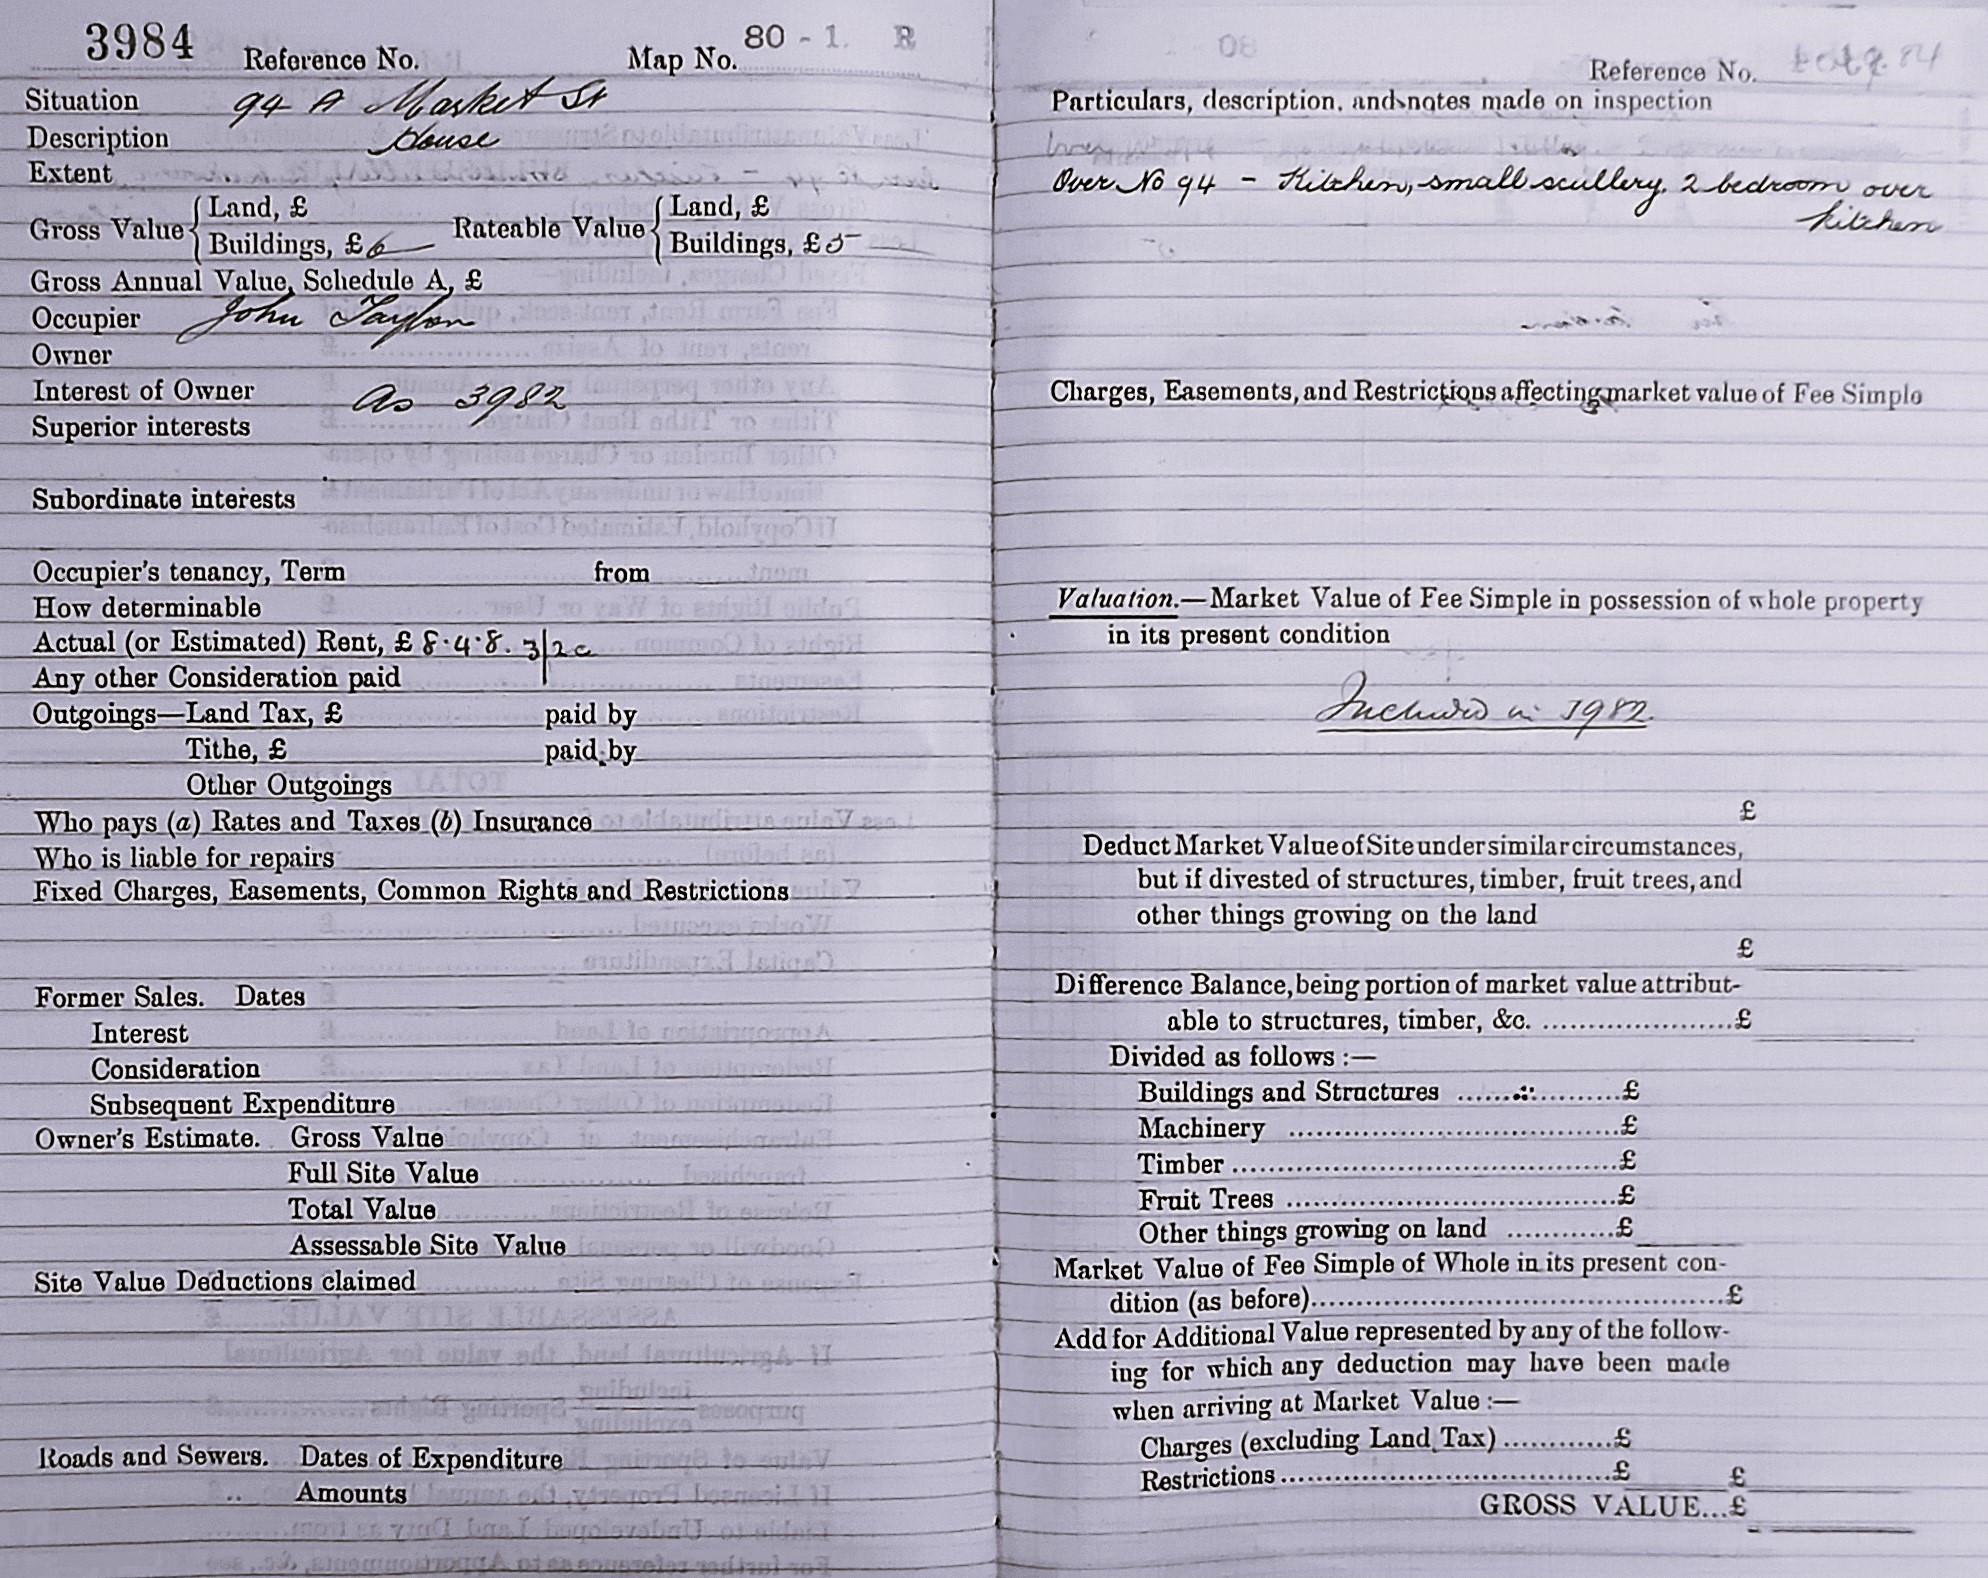 3984 Reference No. Map No. 80 - 1. R
Situation 94 A Market St
Description House
Extent
Gross Value { Land, £ Rateable Value { Land, £
Buildings, £ 6 Buildings, £ 5
Gross Annual Value, Schedule A, £
Occupier John Taylor
Owner
Interest of Owner As 3982
Superior interests
Subordinate interests
Occupier's tenancy, Term from
How determinable
Actual (or Estimated) Rent, £ 8·4·8. 3/2
Any other Consideration paid
Outgoings—Land Tax, £ paid by
Tithe, £ paid by
Other Outgoings
Who pays (a) Rates and Taxes (b) Insurance
Who is liable for repairs
Fixed Charges, Easements, Common Rights and Restrictions
Former Sales. Dates
Interest
Consideration
Subsequent Expenditure
Owner's Estimate. Gross Value
Full Site Value
Total Value
Assessable Site Value
Site Value Deductions claimed
Roads and Sewers. Dates of Expenditure
,, Amounts
Reference No.
Particulars, description, and notes made on inspection
Over No 94 - Kitchen, small scullery, 2 bedroom over
kitchen
Charges, Easements, and Restrictions affecting market value of Fee Simple
Valuation.—Market Value of Fee Simple in possession of whole property
in its present condition
Included in 3982.
£
Deduct Market Value of Site under similar circumstances,
but if divested of structures, timber, fruit trees, and
other things growing on the land
£
Difference Balance, being portion of market value attribut-
able to structures, timber, &c. ......................£
Divided as follows :—
Buildings and Structures ..................£
Machinery ....................................£
Timber..........................................£
Fruit Trees ....................................£
Other things growing on land ............£
Market Value of Fee Simple of Whole in its present con-
dition (as before)..............................................£
Add for Additional Value represented by any of the follow-
ing for which any deduction may have been made
when arriving at Market Value :—
Charges (excluding Land Tax) ............£
Restrictions....................................£ £
GROSS VALUE...£